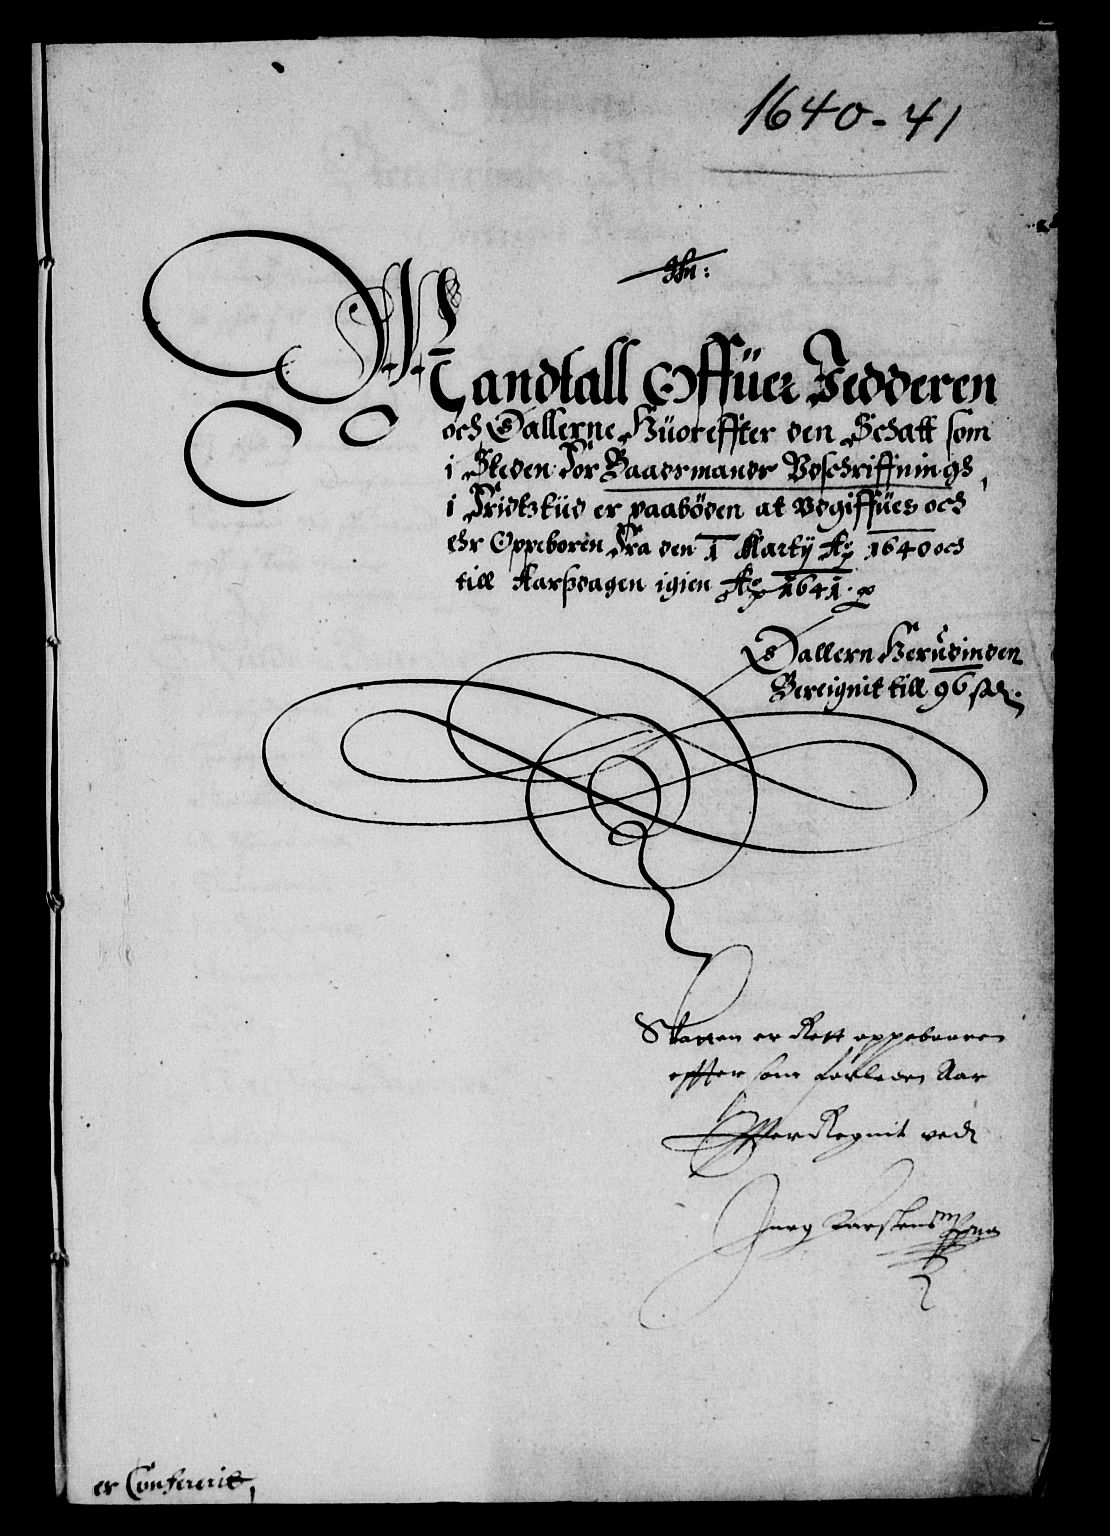 1640-41
Mandtall Offüer Jedderen
och Dallerne Huoreffter den Schatt som
i Steden for Baadsmandz Vdschriffnings,
i Fridtztiid er paabøden at Vdgiffues och
ehr Oppeboren Fra den 1 Martij Ao 1640 och
till Aarszdagen igien Ao 1641.
Dallern Herudinden
Bereignit till 96
Skatten er Rett oppebaaren
effter som forleden Aar
Offuer Regnit ved
Jurg Carstens
er Confererit,